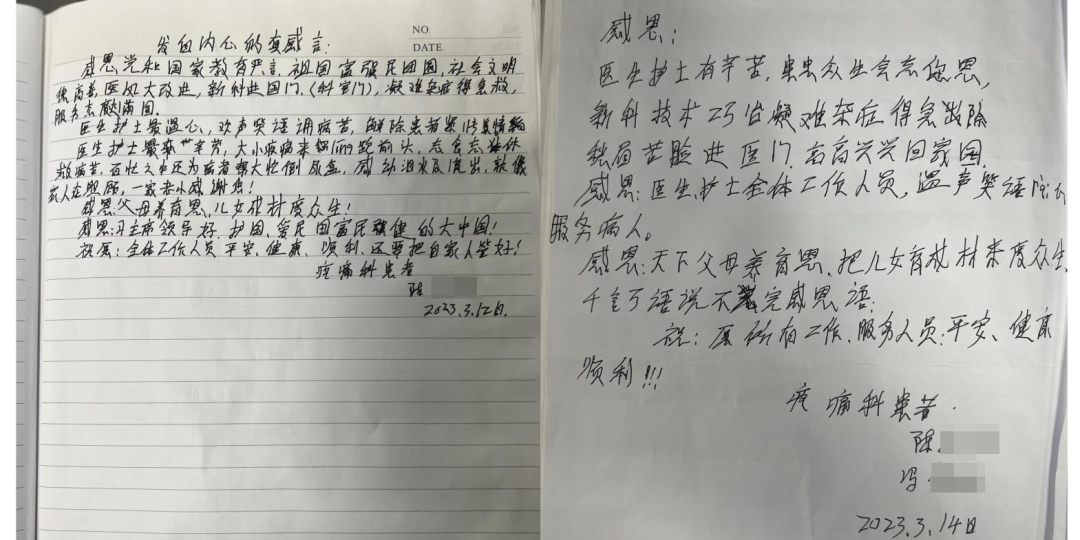 NO.
DATE
发自内心的真感言:
感恩党和国家教育严言,祖国富强民团圆,社会文明
很高善,医风大改进,新科进国门,(科室门),凝难杂症得急救,
服务态颇满园。
医生护士最温心,欢声笑语调病苦,解除患者累情绪
医生护士最辛劳,大小疾病来领前头,舍
救病苦,百忙之中还为病者帮大忙倒尿盒,感动泪水及流出,就像
家人在照顾,一家老小感谢您!
感恩父母养育恩,儿女成材度众生!
感恩:习主席领导好,护国、爱民国富民强健的大中国!
祝愿:全体工作人员平安、健康、顺利,还要把自家人望好!
疼痛科患者
陈
2023.3.12日.
感恩:
医生护士有辛苦,患患众生会志您恩,
新科技术25台凝难杂症得急救除
愁眉苦脸进医门,高高兴兴回家园.
感恩:医生护士全体工作人员,温声笑语
服务病人。
感恩:天下父母养育恩、把儿女育成材来度众生,
千言万语说不完感恩语:
祝:医所有工作、服务人员:平安、健康
顺利!!!
疼痛科患者.
陈.
冯.
2023.3.14日